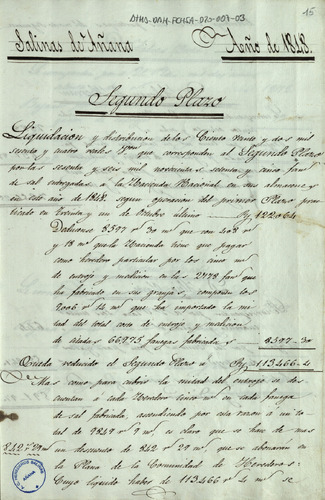 DHHS-OAH-FCHSA-D25-007-03
15
Salinas de Añana
Año de 1848.
Segundo Plazo
Liquidacion y distribucion de los Ciento veinte y dos mil
sesenta y cuatro reales von que corresponden al Segundo Plazo
por las sesenta y seis mil novecientas setenta y cinco fans
de sal entregadas á la Hacienda Nacional en sus almacenes
en este año de 1848. segun operacion del primer Plazo prac
ticado en treinta y un de Octubre ultimo 122,064
8597 r 30 ms que con 408 r
y 18 ms que la Hacienda tiene que pagar
como heredero particular por los cinco ms
de entroje y maslicion en las 2778 fans que
ha fabricado en sus granjas, componen los
9006 r 14 ms que ha importado la mi
tad del total coste de entroje y
de a 66975 fanegas fabricadas 8597-30
Queda reducido el Segundo Plazo á 113.466-4
Mas como para cubrir la mitad del entroge se des
cuentan á cada Heredero cinco ms en cada fanega
de sal fabricada, ascendiendo por esta razon á mi
tad de 9849 r 9 ms es claro que se hace de mas
842 r 29 ms
un descuento de 842 r 29 ms que se abonarán en
la Plana de la Comunidad de Herederos:
Cuyo liquido haber de 113,466 r 4 ms se